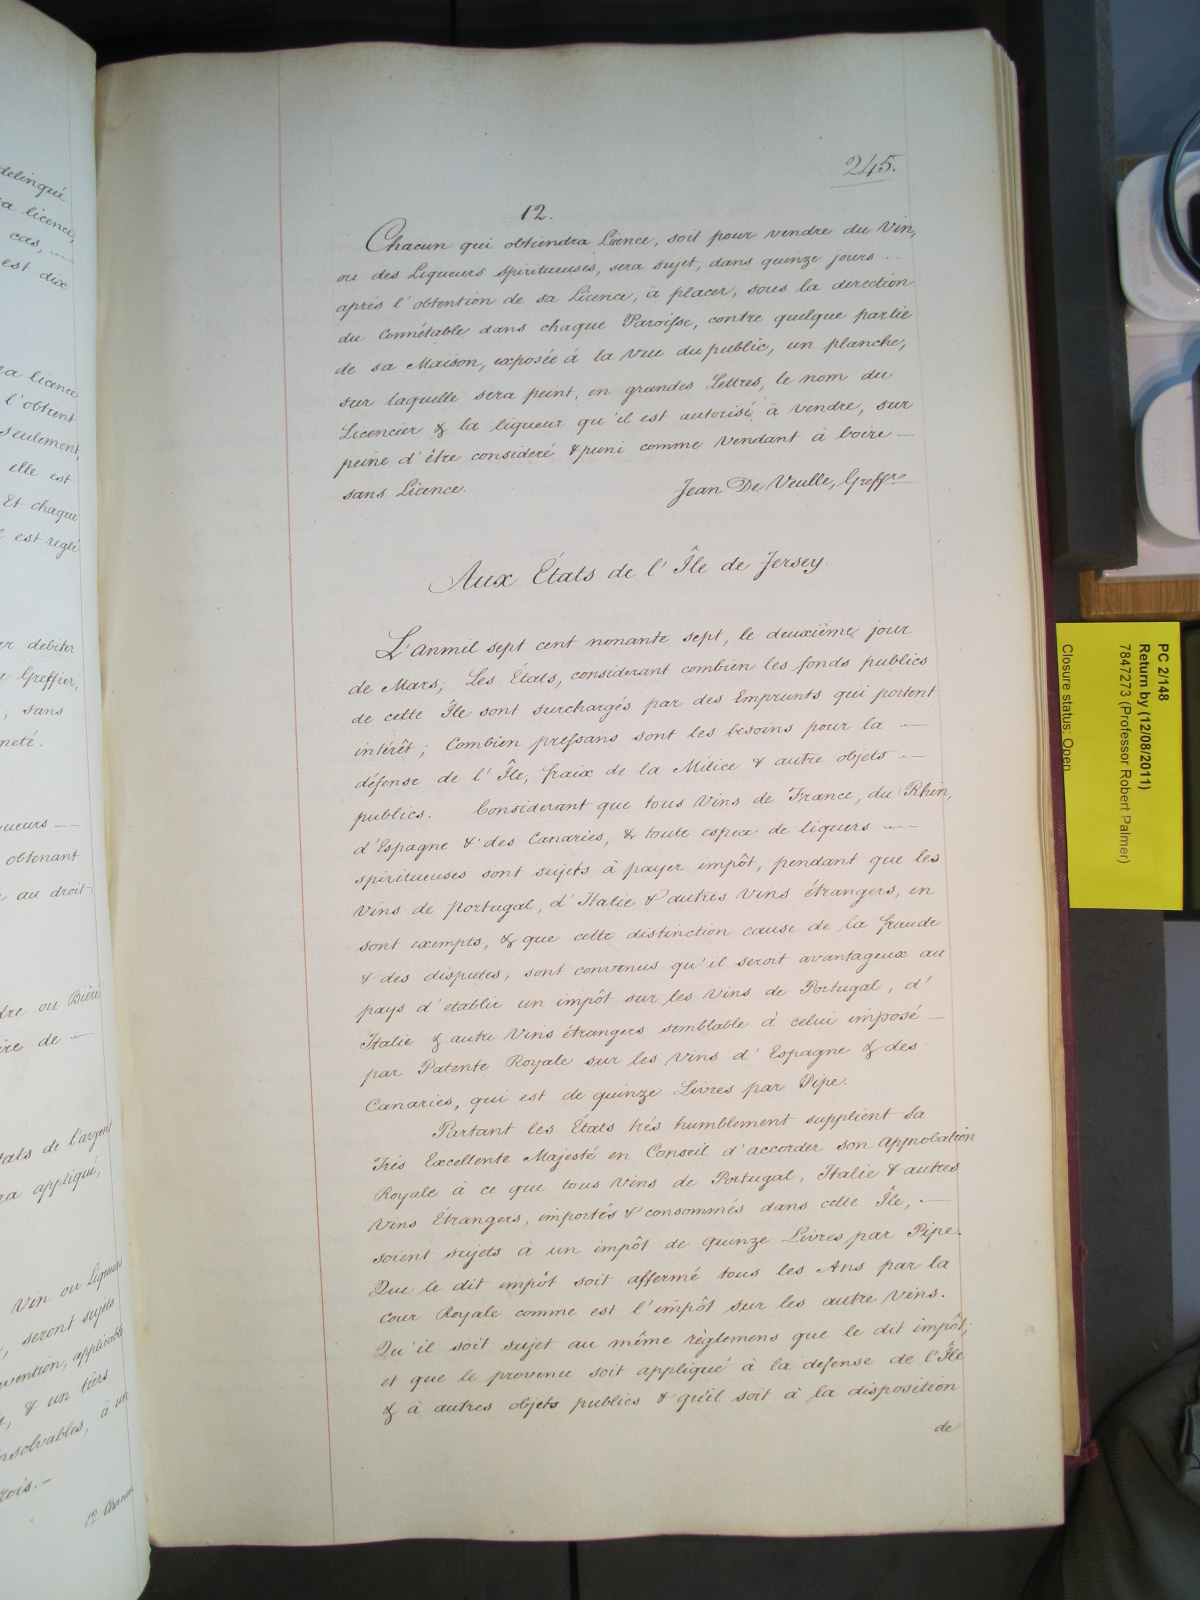 delinqué
a licence,
cas,
est dix
a licence
l'obtient
seulement,
elle est
Et chaque
est reglé
debiter
Greffier,
, sans
neté.
queurs —
obtenant
au droit
dre ou Bière
ire de —
tats de l'argent
ra appliqué,
Vin ou Liqueurs
, seront sujets
vention, applicable
, & un tiers
nsolvables, à un
rois.—
12 Chacun
245.
12.
Chacun qui obtiendra Licence, soit pour vendre du Vin,
ou des Liqueurs spiritueuses, sera sujet, dans quinze jours
aprés l'obtention de sa Licence, à placer, sous la direction
du Connétable dans chaque Paroisse, contre quelque partie
de sa Maison, exposée à la vue du public, un planche,
sur laquelle sera peint, en grandes Lettres, le nom du
Licencier & la liqueur qu'il est autorisé à vendre, sur
peine d'être consideré & puni comme Vendant à boire —
sans Licence. Jean De Veulle, Greffre
Aux États de l'Île de Jersey.
L'an mil sept cent nonante sept, le deuxième jour
de Mars; Les États, considerant combien les fonds publics
de cette Île sont surchargés par des Emprunts qui portent
intérêt; Combien pressans sont les besoins pour la —
défense de l'Île, fraix de la Milice & autre objets —
publics. Considerant que tous Vins de France, du Rhin,
d'Espagne & des Canaries, & toute espece de liquers —
spiritueuses sont sujets à payer impôt, pendant que les
Vins de Portugal, d'Italie & autres Vins étrangers, en
sont exempts, & que cette distinction cause de la fraude
& des disputes, sont convenus qu'il seroit avantageux au
pays d'etablir un impôt sur les Vins de Portugal, d'
Italie & autre Vins étrangers semblable à celui imposé —
par Patente Royale sur les Vins d'Espagne & des
Canaries, qui est de quinze Livres par Pipe.
Partant les États trés humblement supplient Sa
Trés Excellente Majesté en Conseil d'accorder son Approbation
Royale à ce que tous Vins de Portugal, Italie & autres
Vins Étrangers, importés & consommés dans cette Île, —
soient sujets à un impôt de quinze Livres par Pipe.
Que le dit impôt soit affermé tous les Ans par la
Cour Royale comme est l'impôt sur les autre Vins.
Qu'il soit sujet au même règlemens que le dit impôt;
et que le provenu soit appliqué à la defense de l'Île
& à autres objets publics & qu'il soit à la disposition
de
PC 2/148
Return by (12/08/2011)
7847273 (Professor Robert Palmer)
Closure status: Open